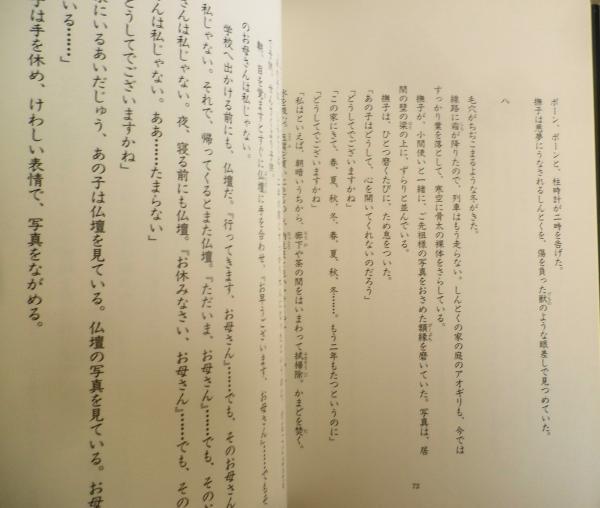 ボーン、ボーンと、柱時計が二時を告げた。
撫子は悪夢にうなされるしんとくを、傷を負った獣のような眼差しで見つめていた。
へ
毛穴がちぢこまるような冬がきた。
線路に霜が降りたので、列車はもう走らない。しんとくの家の庭のアオギリも、今では
すっかり葉を落として、寒空に骨太の裸体をさらしている。
撫子が、小間使いと一緒に、ご先祖様の写真をおさめた額縁を磨いていた。写真は、居
間の壁の梁の上に、ずらりと並んでいる。
撫子は、ひとつ磨くたびに、ため息をついた。
「あの子はどうして、心を開いてくれないのだろう」
「どうしてでございますかね」
「この家にきて、春、夏、秋、冬、春、夏、秋、冬……。もう二年もたつというのに」
「どうしてでございますかね」
「私はといえば、朝暗いうちから、廊下や茶の間をはいまわって拭掃除。かまどを焚く。
72
朝、目を覚ますとすぐに仏壇に手を合わせ、『お早うございます、お母さん』……でもそ
のお母さんは私じゃない。
学校へ出かける前にも、仏壇だ。『行ってきます、お母さん』……でも、そのお母さん
私じゃない。それで、帰ってくるとまた仏壇。『ただいま、お母さん』……でも、そのお
さんは私じゃない。夜、寝る前にも仏壇。『お休みなさい、お母さん』……でも、その
さんは私じゃない。ああ……たまらない」
どうしてでございますかね」
家にいるあいだじゅう、あの子は仏壇を見ている。仏壇の写真を見ている。お母
いる……」
子は手を休め、けわしい表情で、写真をながめる。